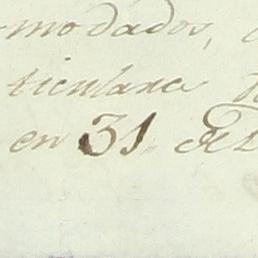 -modados,
ticulares
en 31. de